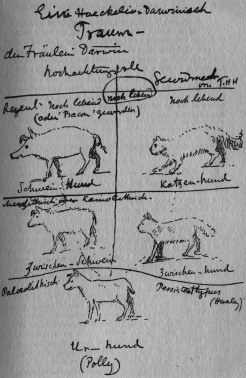 Eine Haeckelis-Darwinisch
Traum —
den Fräulein Darwin
hochachtungsvoll
von T.H.H
Recent - Noch lebend
(oder 'Bacon' geworden)
noch leben
Noch lebend
Schwein-Hund
Katzen-hund
Zwischen-Schwein
Zwischen-hund
Palaeolithisch
(Huxley)
Ur-hund
(Polly)